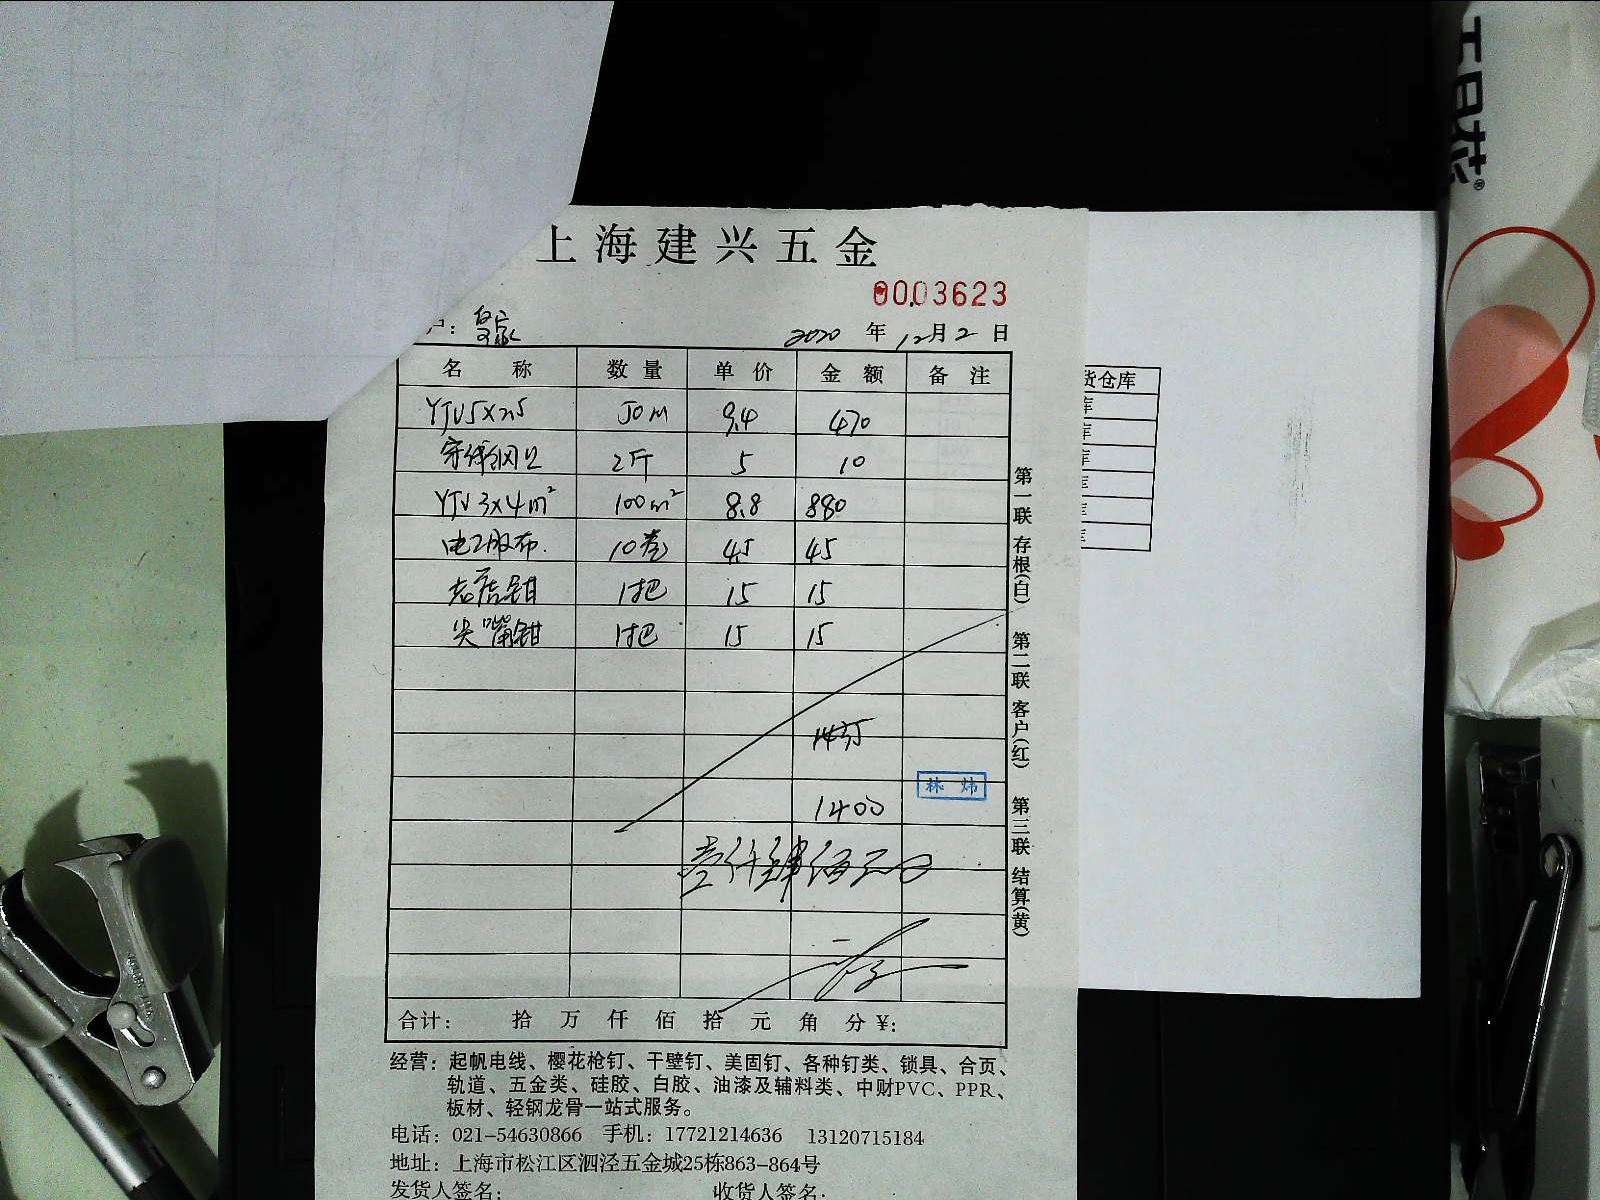 上海建兴五金
0003623
户:
2020 年 12月2日
名 称 数 量 单 价 金 额 备 注
YJV5X2.5 50m 9.4 470
2斤 5 10
YJV 3x4m² 100m² 8.8 880
电工胶布. 10卷 4.5 45
老虎钳 1把 15 15
尖嘴钳 1把 15 15
1400
林 炜
壹仟肆佰元
合计: 拾 万 仟 佰 拾 元 角 分 ¥:
第一联 存根(白) 第二联 客户(红) 第三联 结算(黄)
经营: 起帆电线、樱花枪钉、干壁钉、美固钉、各种钉类、锁具、合页、
轨道、五金类、硅胶、白胶、油漆及辅料类、中财PVC、PPR、
板材、轻钢龙骨一站式服务。
电话: 021-54630866 手机: 17721214636 13120715184
地址: 上海市松江区泗泾五金城25栋863-864号
发货人签名: 收货人签名:
货仓库
库
库
库